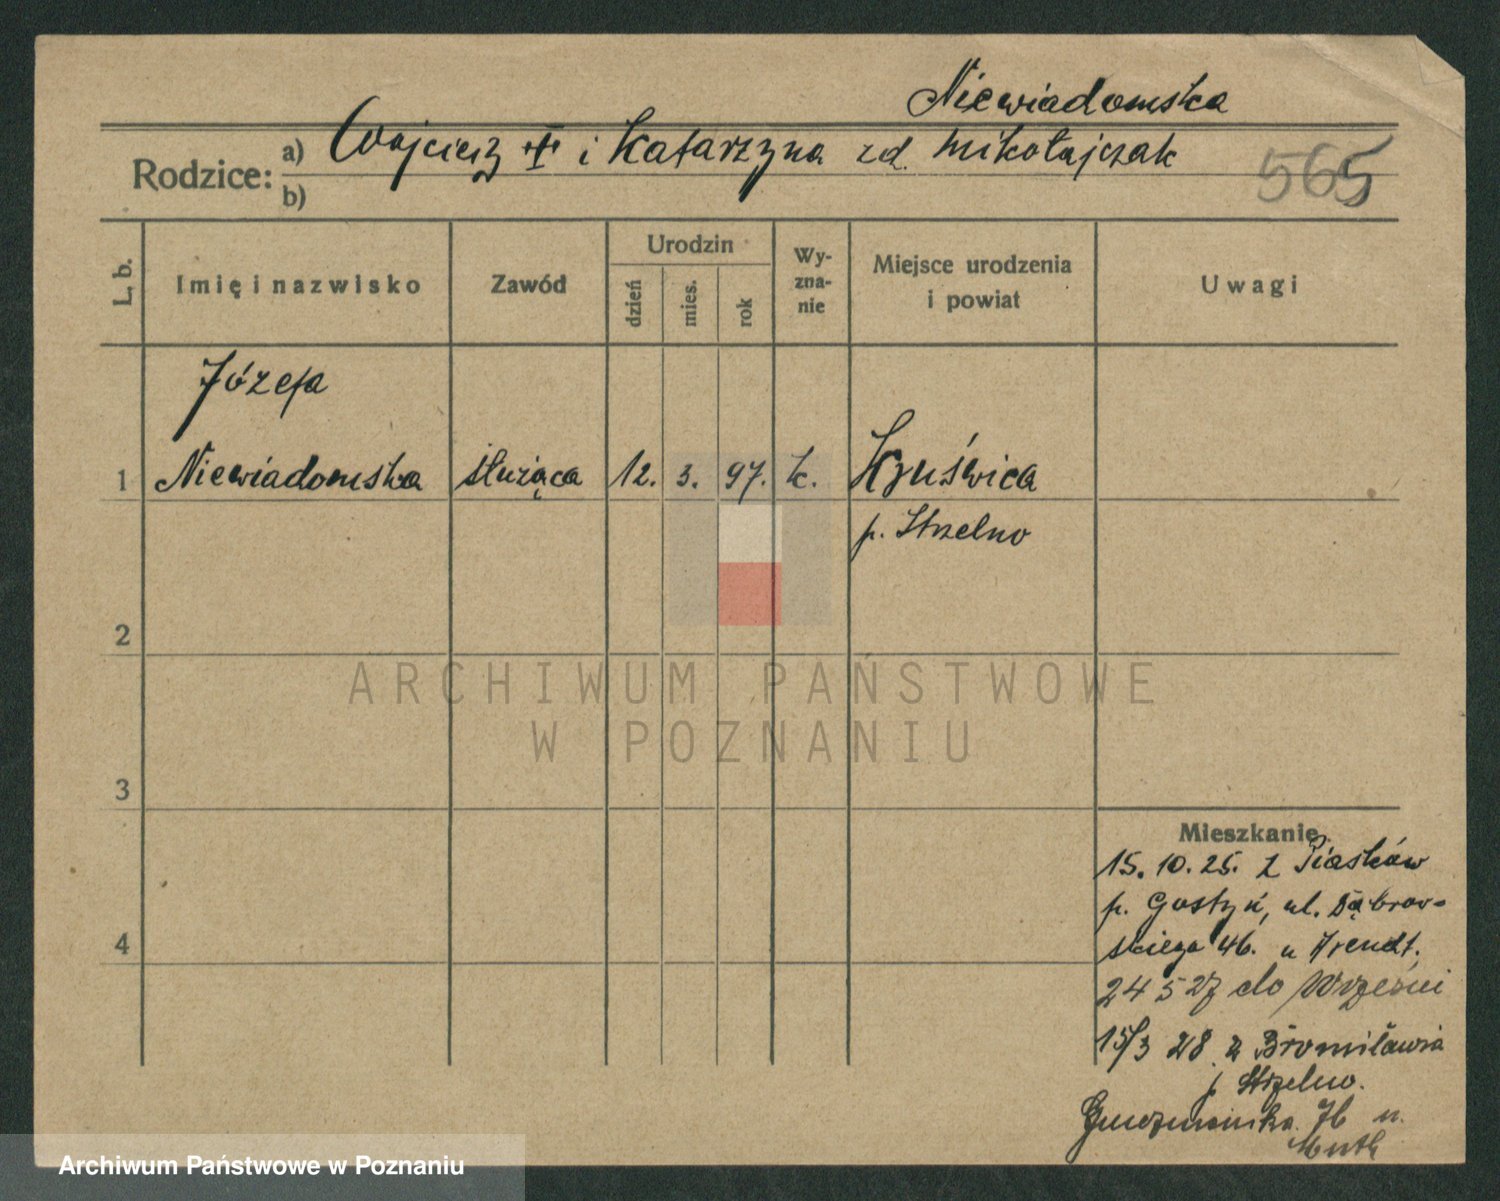 Niewiadomska
Rodzice: a) Wojciech + i Katarzyna zd. Mikołajczak
b)
565
L. b.
Imię i nazwisko
Zawód
Urodzin
dzień
mies.
rok
Wy-
zna-
nie
Miejsce urodzenia
i powiat
Uwagi
Józefa
1 Niewiadomska służąca 12. 3. 97. k. Kruświca
p. Strzelno
2
3
4
ARCHIWUM PAŃSTWOWE
W POZNANIU
Mieszkanie
15. 10. 25. z Piasków
p. Gostyń, ul. Dąbrow-
skiego 46. u Arendt.
24 5 27 do Wrześni
15/3 28 z Bronisławia
p Strzelno.
76 u.
Muth
Archiwum Państwowe w Poznaniu